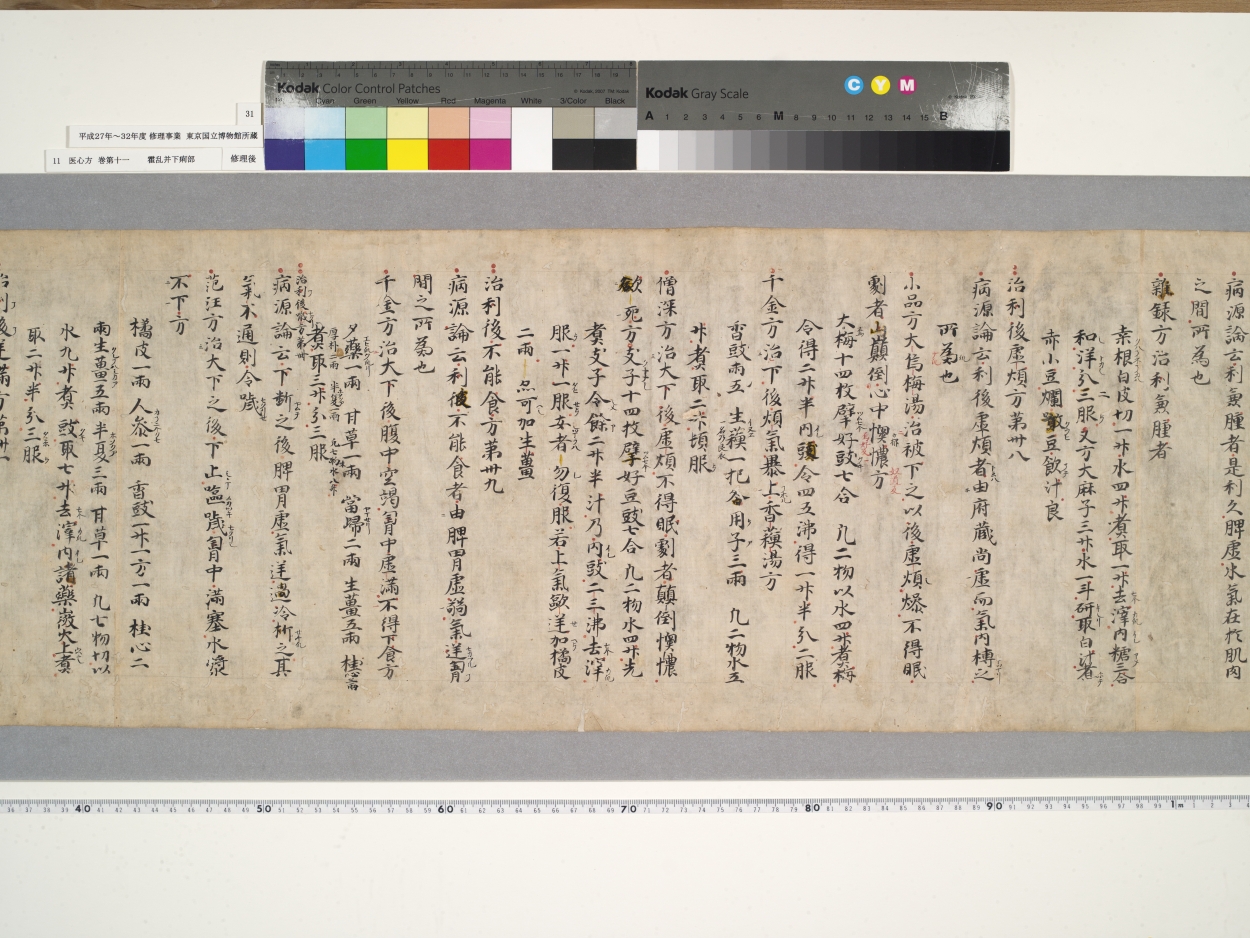 Kodak Color Control Patches
© Kodak 2007 TM Kodak
Cyan Green Yellow Red Magenta White 3/Color Black
Kodak Gray Scale
C Y M
A 1 2 3 4 5 6 M 8 9 10 11 12 13 14 15 B
31
平成27年～32年度 修理事業 東京国立博物館所蔵
11 医心方 巻第十一 霍乱并下痢部 修理後
病源論云利兼腫者是利久脾虚水氣在於肌肉
之間所為也
雜録方治利兼腫者
桒根白皮切一升水四升煮取一升去滓内糖三合
和洋分三服又方大麻子三升水一斗研取白汁煮
赤小豆爛 豆飲汁良
治利後虚煩方第卅八
病源論云利後虚煩者由府蔵尚虚而氣内搏之
所為也
小品方大烏梅湯治被下之以後虚煩燥不得眠
劇者 顛倒心中懊憹方
大梅十四枚擘好豉七合 凡二物以水四升煮梅
令得二升半内 令四五沸得一升半分二服
千金方治下後煩氣暴上香蘓湯方
香豉五兩 生蘓一把 用子三兩 凡二物水五
升煮取二升頓服
僧深方治大下後虚煩不得眠劇者顛倒懊憹
欲死方支子十四枚擘好豆豉七合凡二物水四升先
煮支子令餘二升半汁乃内豉二三沸去滓
服一升一服安者勿復服若上氣歐逆加橘皮
二兩 亦可加生薑
治利後不能食方第卅九
病源論云利 不能食者由脾胃虚 氣逆胃
間之所為也
千金方治大下後腹中空竭胷中虚滿不得下食方
夕藥一兩 甘草一兩 當歸二兩 生薑五兩 桂心三兩
厚朴二兩 半夏一兩 凡七物水八升
煮取三升分三服
治利後噦方第卌
病源論云下斷之後脾胃虚氣逆遇冷折之其
氣不通則令噦
范汪方治大下之後下止噦胷中滿塞水漿
不下方
橘皮一兩 人参一兩 香豉一升一方一兩 桂心二
兩生薑五兩半夏三兩 甘草一兩 凡七物切以
水九升煮豉取七升去滓内諸藥微火上煮
取二升半分三服
治利後逆滿方第卌一